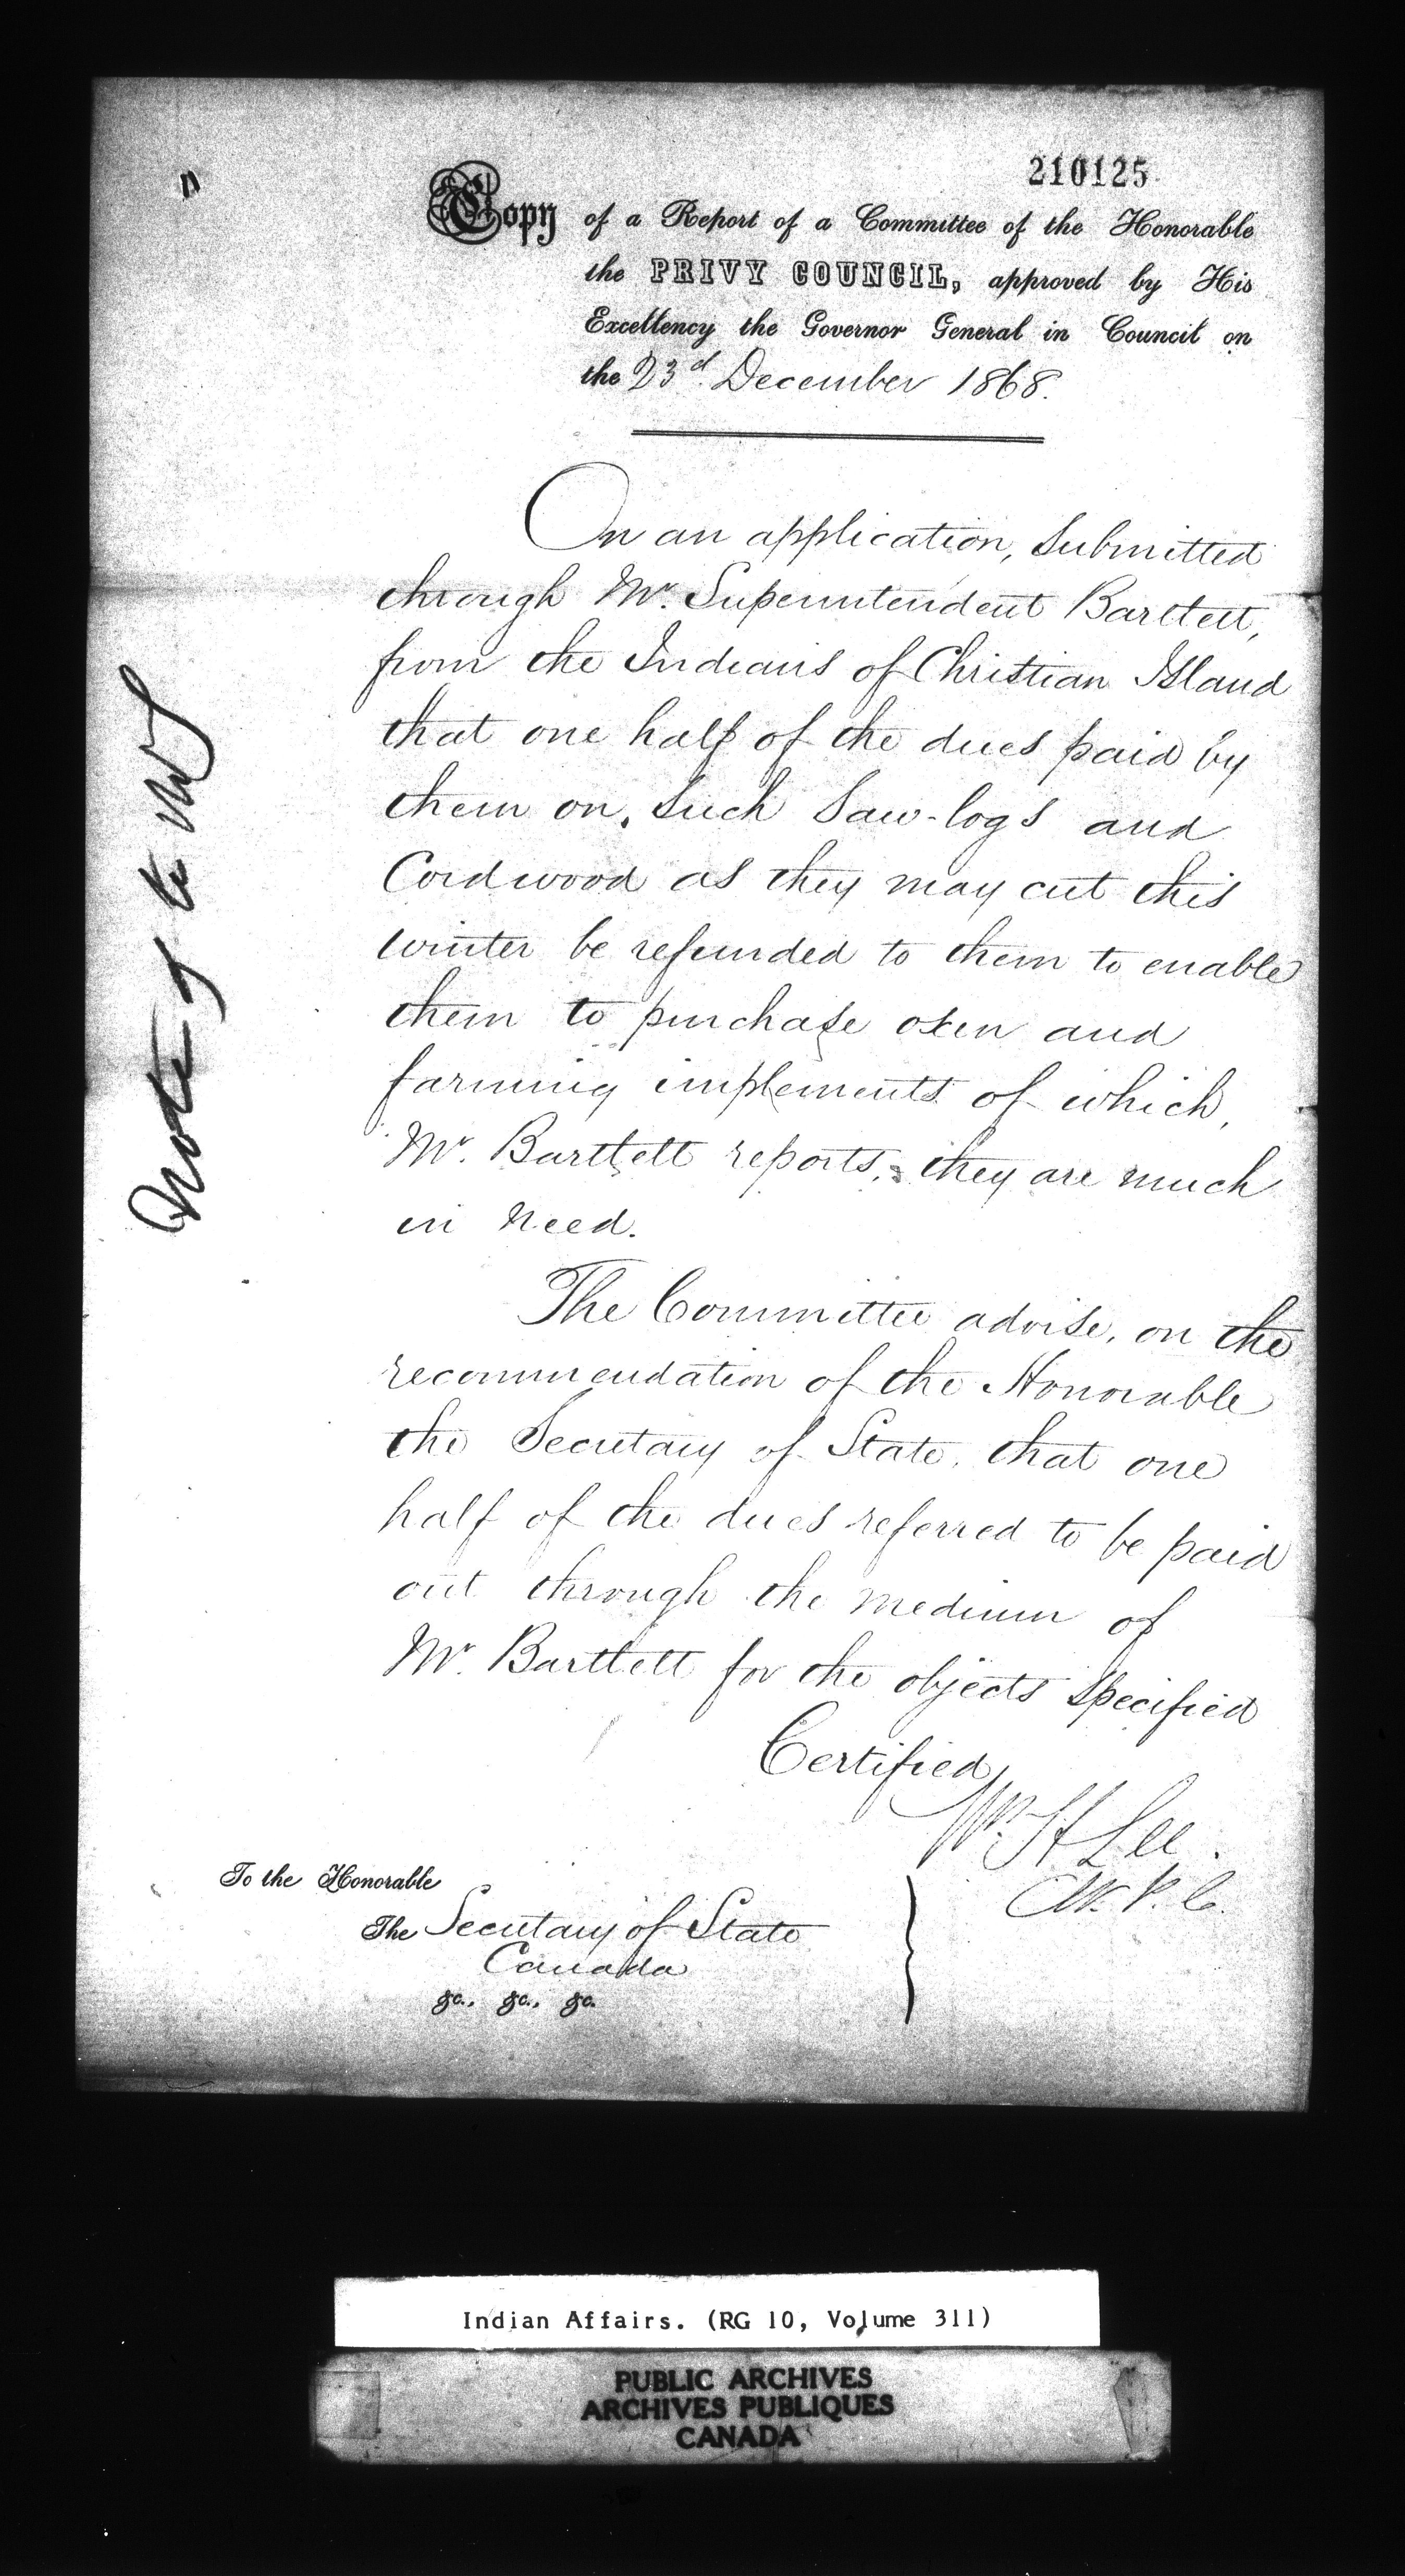 210125
Copy of a Report of a Committee of the Honorable
the PRIVY COUNCIL, approved by His
Excellency the Governor General in Council on
the 23d December 1868.
On an application, submitted
through Mr. Superintendent Bartlett,
from the Indians of Christian Island
that one half of the dues paid by
them on, such Saw-logs and
Cordwood as they may cut this
winter be refunded to them to enable
them to purchase oxen and
farming implements of which,
Mr. Bartlett reports, they are much
in need.
The Committee advise, on the
recommendation of the Honorable
the Secretary of State, that one
half of the dues referred to be paid
out through the medium of
Mr. Bartlett for the objects specified
Certified
Wm. H Lee.
Clk. P. C.
To the Honorable
The Secretary of State
Canada
&c., &c., &c.
Indian Affairs. (RG 10, Volume 311)
PUBLIC ARCHIVES
ARCHIVES PUBLIQUES
CANADA